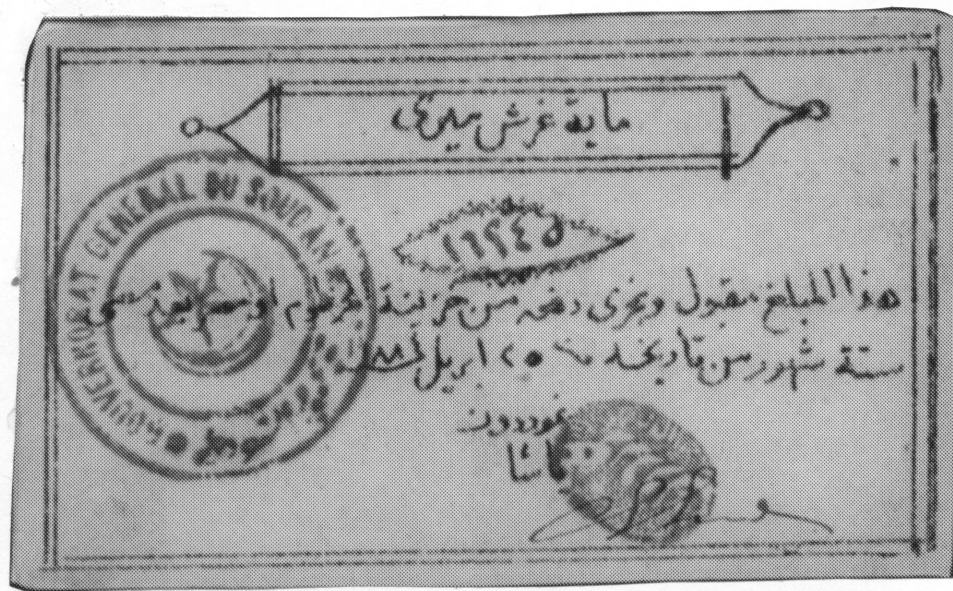 ماية غرش ميرى
GOUVERNORAT GENERAL DU SOUDAN
١٦٢٤٥
هذا المبلغ مقبول ويجرى دفعه من خزينة الخرطوم او مصر بعد مضى
ستة شهور من تاريخه ٢٥ ابريل
غوردون
باشا